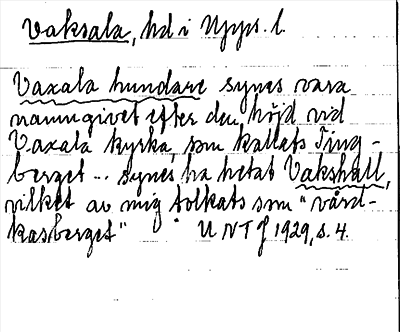 Vaksala, hd i Upps. l.
Vaxala hundare synes vara
namngivet efter den höjd vid
Vaxala kyrka, som kallats Ting-
berget ... synes ha hetat Vakshall,
vilket av mig tolkats som "vård-
kasberget" UNTJ 1929, s. 4.